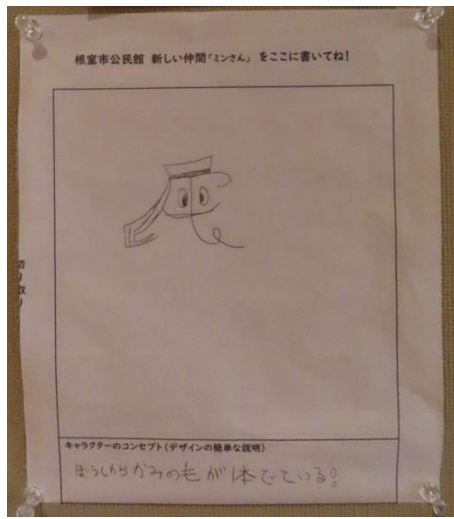 根室市公民館 新しい仲間「ミンさん」 をここに書いてね!
切り取り
キャラクターのコンセプト(デザインの簡単な説明)
ぼうしからかみの毛が1本でている!